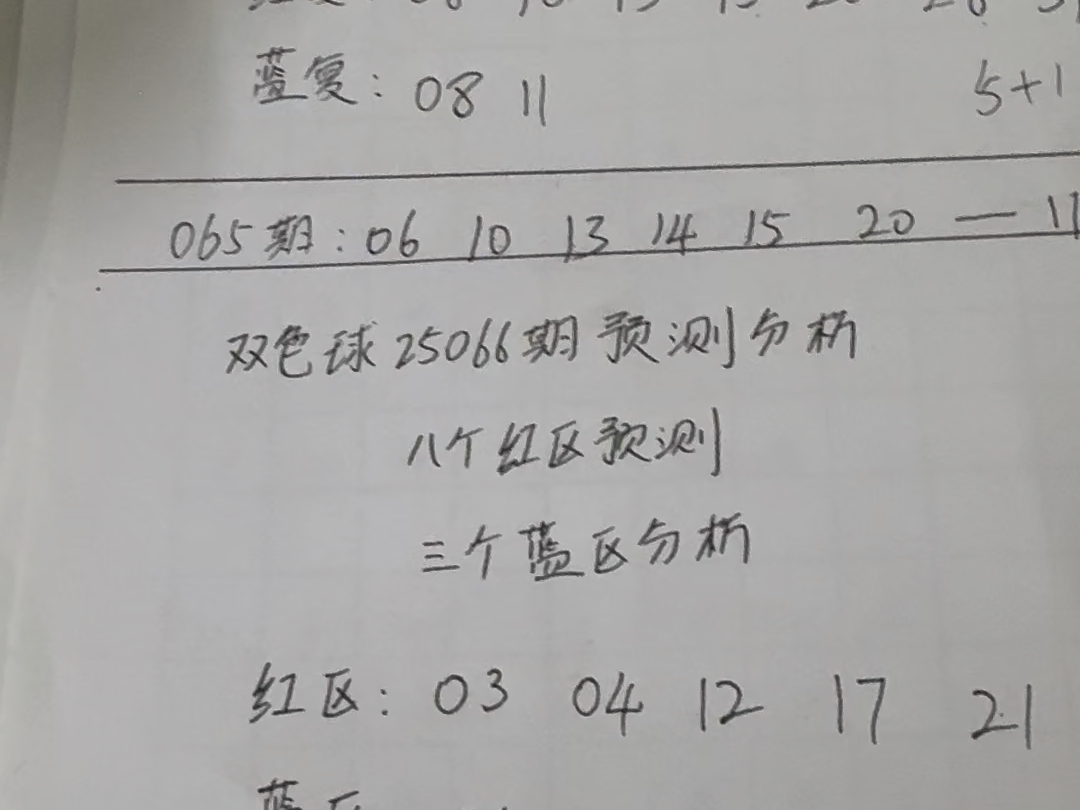 蓝复: 08 11 5+1
065期: 06 10 13 14 15 20 — 11
双色球25066期预测分析
八个红区预测
三个蓝区分析
红区: 03 04 12 17 21